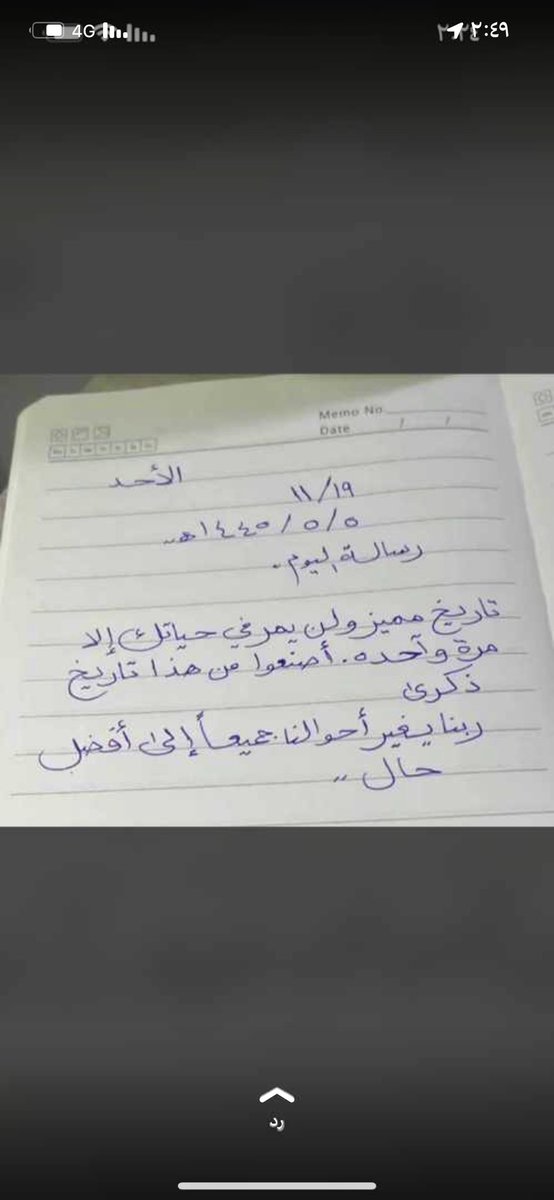 4G
٢:٤٩
Memo No.
Date / /
الأحد
١١/١٩
٥/٥/١٤٤٥هـ..
رسالة اليوم..
تاريخ مميز ولن يمر في حياتك إلا
مرة وآحده. أصنعوا من هذا تاريخ
ذكرئ
ربنا يغير أحوالنا جميعاً إلىٰ أفضل
حال ..
رد